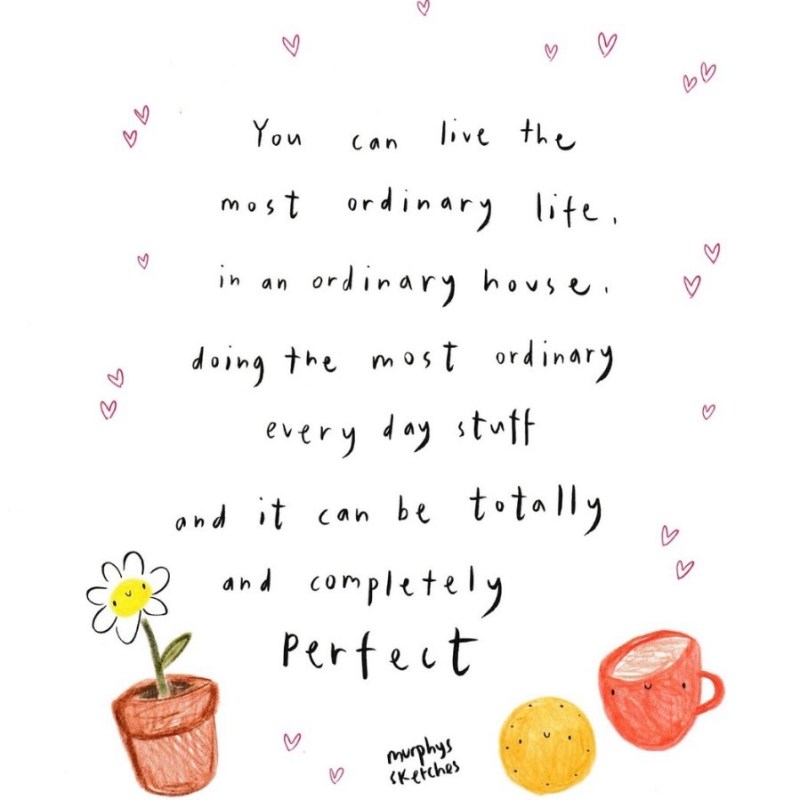 You can live the
most ordinary life,
in an ordinary house,
doing the most ordinary
every day stuff
and it can be totally
and completely
perfect
murphys
sketches